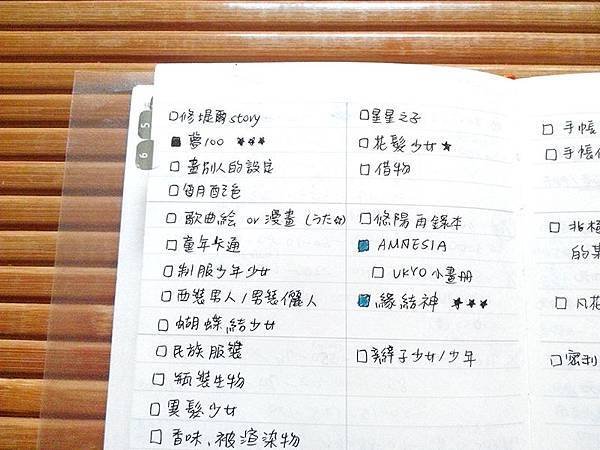 5
6
□修堤爾story
■夢100 ★★★
□畫別人的設定
□個月配色
□歌曲絵 or 漫畫 (うた☆)
□童年卡通
□制服少年少女
□西裝男人/男裝儷人
□蝴蝶結少女
□民族服裝
□瓶裝生物
□異髮少女
□香味、被渲染物
□星星之子
□花髮少女★
□借物
□修陽再錄本
■AMNESIA
□UKYO小畫冊
■緣結神 ★★★
□辮子少女/少年
□手帳
□手帳
□北極
的
□凡花
□密利